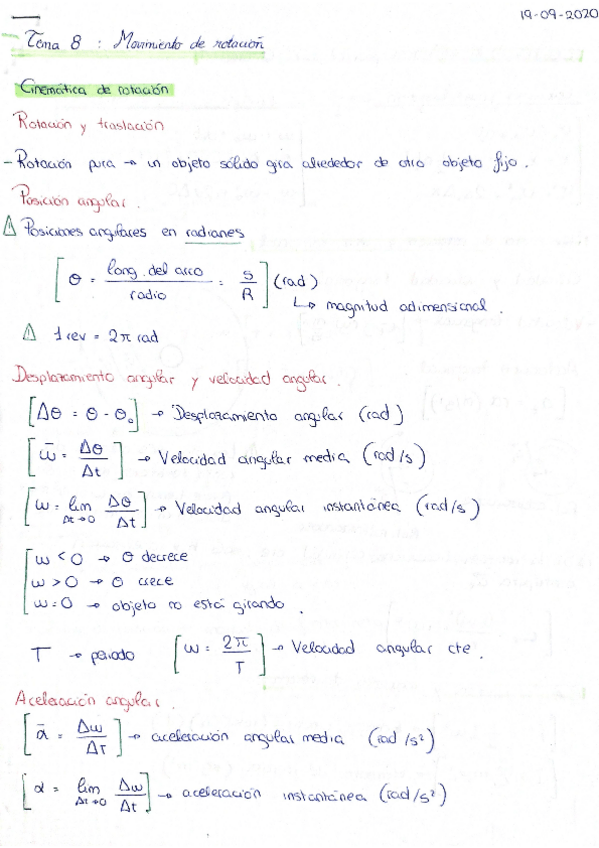 19-09-2020
Tema 8 : Movimiento de rotación
Cinemática de rotación
Rotación y traslación
- Rotación pura → un objeto sólido gira alrededor de otro objeto fijo.
Posición angular.
⚠ Posiciones angulares en radianes
[θ = long. del arco / radio = S / R] (rad)
↳ magnitud adimensional.
⚠ 1 rev = 2π rad
Desplazamiento angular y velocidad angular.
[Δθ = θ - θ₀] → Desplazamiento angular (rad)
[ω̄ = Δθ / Δt] → Velocidad angular media (rad/s)
[ω = lim Δt→0 Δθ / Δt] → Velocidad angular instantánea (rad/s)
ω < 0 → θ decrece
ω > 0 → θ crece
ω = 0 → objeto no está girando.
T → periodo [ω = 2π / T] → Velocidad angular cte.
Aceleración angular.
[ᾱ = Δω / Δt] → aceleración angular media (rad/s²)
[α = lim Δt→0 Δω / Δt] → aceleración instantánea (rad/s²)